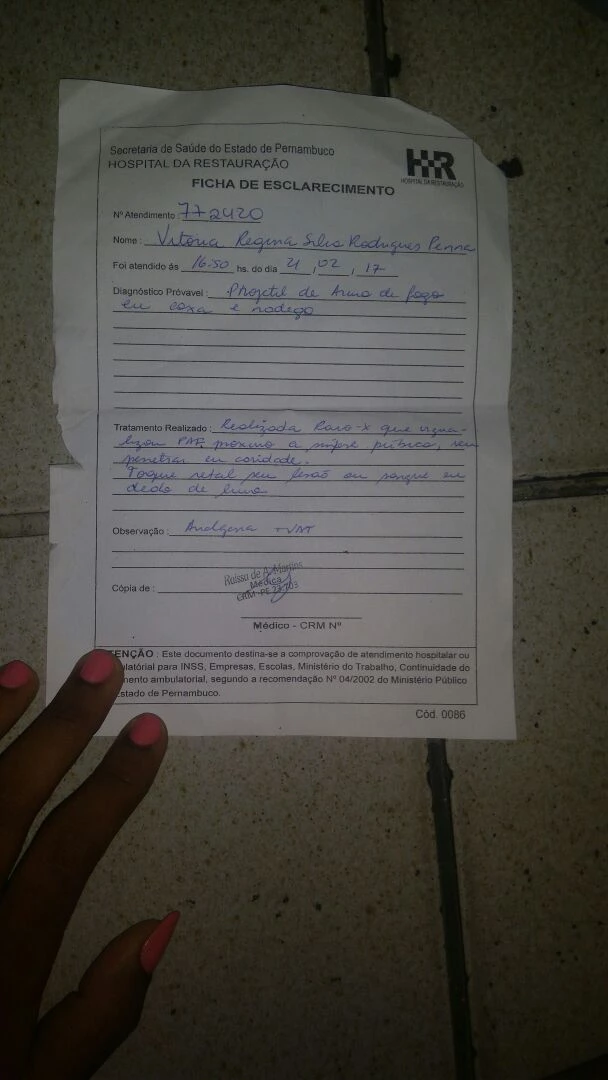 Secretaria de Saúde do Estado de Pernambuco
HOSPITAL DA RESTAURAÇÃO
HR
HOSPITAL DA RESTAURAÇÃO
FICHA DE ESCLARECIMENTO
Nº Atendimento : 772420
Nome : Vitória Regina Silva Rodrigues Penna
Foi atendido ás 16:50 hs. do dia 21 , 02 , 17
Diagnóstico Prévavel : Projetil de Arma de fogo
em coxa e nadega
Tratamento Realizado : Realizada Raio-X que visua-
lizou PAF próximo a sinfise púbica, sem
penetrar em cavidade.
Toque retal sem lesão ou sangue em
dedo de luva.
Observação : + VAT
Cópia de :
Raissa de A. Martins
Médica
CRM-PE
Médico - CRM Nº
ENÇÃO : Este documento destina-se a comprovação de atendimento hospitalar ou
ulatórial para INSS, Empresas, Escolas, Ministério do Trabalho, Continuidade do
mento ambulatorial, segundo a recomendação Nº 04/2002 do Ministério Público
Estado de Pernambuco.
Cód. 0086